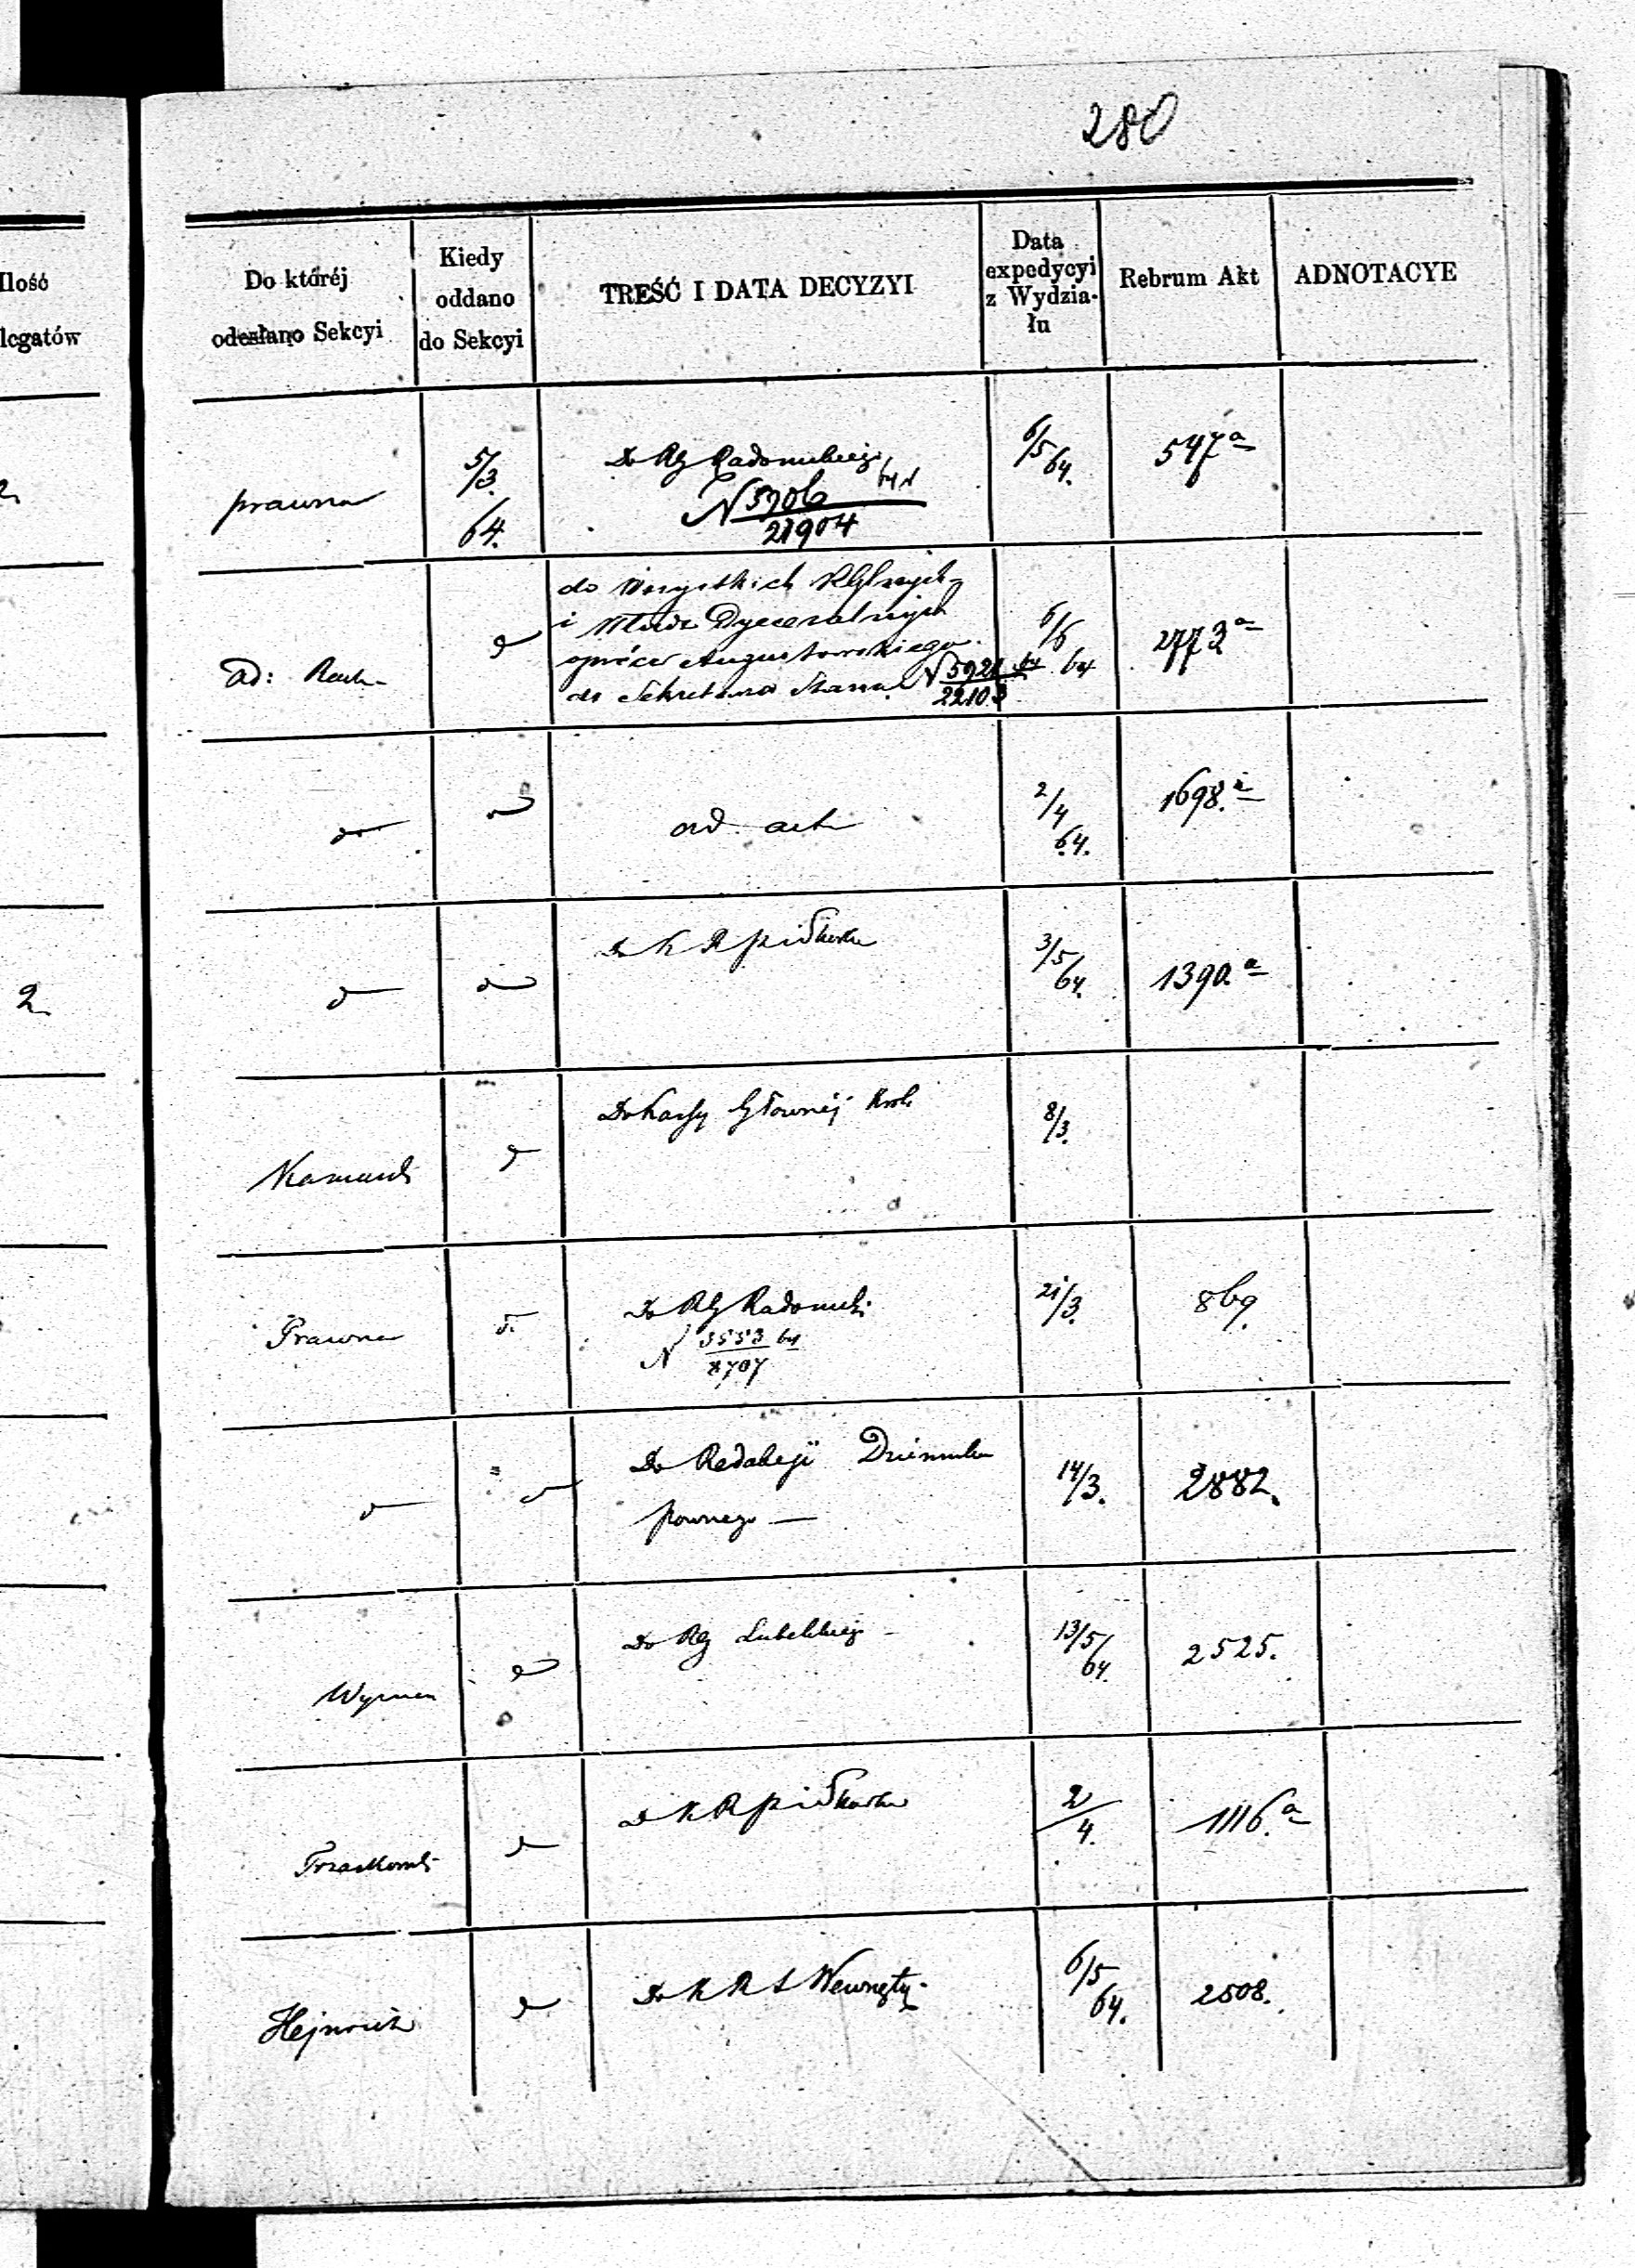 280
Ilość
legatów
2
2
Do któréj
odesłano Sekcyi
Kiedy
oddano
do Sekcyi
TREŚĆ I DATA DECYZYI
Data
expedycyi
z Wydzia-
łu
Rebrum Akt
ADNOTACYE
prawna
5/3.
64.
Do RG Radomskiego
N 5906/21904 64
6/5 64.
547 a
ad: Rach
d
do Wszystkich RGlnych
i Władz Dyecezalnych
oprócz Augustowskiego
do Sekretarza Stanu N 5921/22103 64
6/5 64
2773 a
do
d
ad acta
2/4 64.
1698. a
d
d
Do K R P i Skarbu
3/5 64.
1390. a
d
Do Kassy Głównéj Król
8/3.
Prawna
d.
Do RG Radomski
N 3553/8707 64
21/3.
869.
d
d
Do Redakcji Dziennika
Pownego —
14/3.
2882.
Wyznan
d
Do RG Lubelskiego
13/5 64.
2525.
Trzaskowski
d
Do K R P i Skarbu
2/4.
1116. a
Hejnrich
d
Do K R S Wewnętrz
6/5 64.
2508.